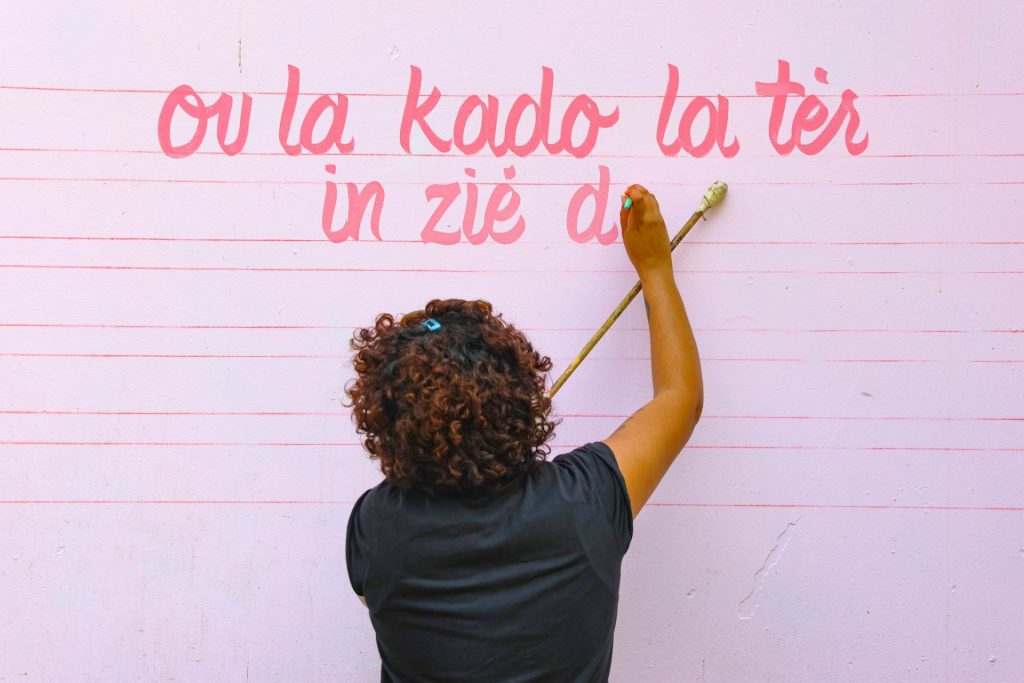 ou la kado la tèr
in zié d